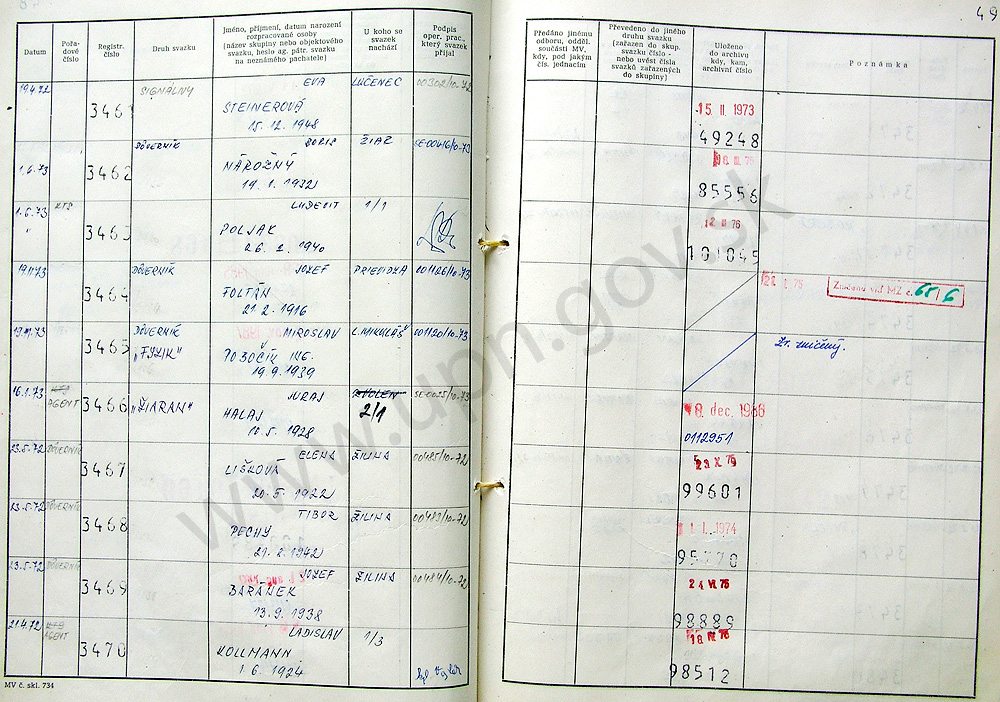 49
Datum
Pořa-
dové
číslo
Registr.
číslo
Druh svazku
Jméno, příjmení, datum narození
rozpracované osoby
(název skupiny nebo objektového
svazku, heslo ag. pátr. svazku
na neznámého pachatele)
U koho se
svazek
nachází
Podpis
oper. prac.,
který svazek
přijal
Předáno jinému
odboru, odděl.
součásti MV,
kdy, pod jakým
čís. jednacím
Převedeno do jiného
druhu svazku
(zařazen do skup.
svazku číslo -
nebo uvést čísla
svazků zařazených
do skupiny)
Uloženo
do archivu
kdy, kam,
archivní číslo
Poznámka
19.4.72 3461 SIGNÁLNY EVA LUČENEC 00302/10-72
STEINEROVÁ
15. 12. 1948
15. II. 1973
49248
1.6.73 3462 DÔVERNÍK BORIS ŽIAR SE00416/10-73
NÁROŽNÝ
19. 1. 1932
85556
1.6.73 KTS 3463 ĽUDEVIT 1/1
POLJAK
26. 2. 1940
101045
3464 DÔVERNÍK JOZEF PRIEVIDZA 001126/10-73
FOLTÁN
21. 2. 1916
Zničeno viz MZ č. 68/6
3465 DÔVERNÍK MIROSLAV L. MIKULÁŠ 001120/10-73
"FYZIK"
19. 9. 1939
Zv. zničený.
16.1.73 AGENT 3466 "ŽIARAN" JURAJ ZVOLEN
2/1
HALAJ
10. 5. 1928
8. dec. 1988
0112951
23.5.72 DÔVERNÍK 3467 ELENA ŽILINA 00485/10-72
LIŠKOVÁ
20. 5. 1922
99601
23.5.72 DÔVERNÍK 3468 TIBOR ŽILINA 00483/10-72
PECHY
21. 2. 1942
1974
95770
23.5.72 DÔVERNÍK 3469 JOZEF ŽILINA 00484/10-72
BARÁNEK
13. 9. 1938
24 VI. 76
98889
21.4.72 KTS
AGENT 3470 LADISLAV 1/3
KOLLMANN
1. 6. 1924
98512
MV č. skl. 734
www.upn.gov.sk